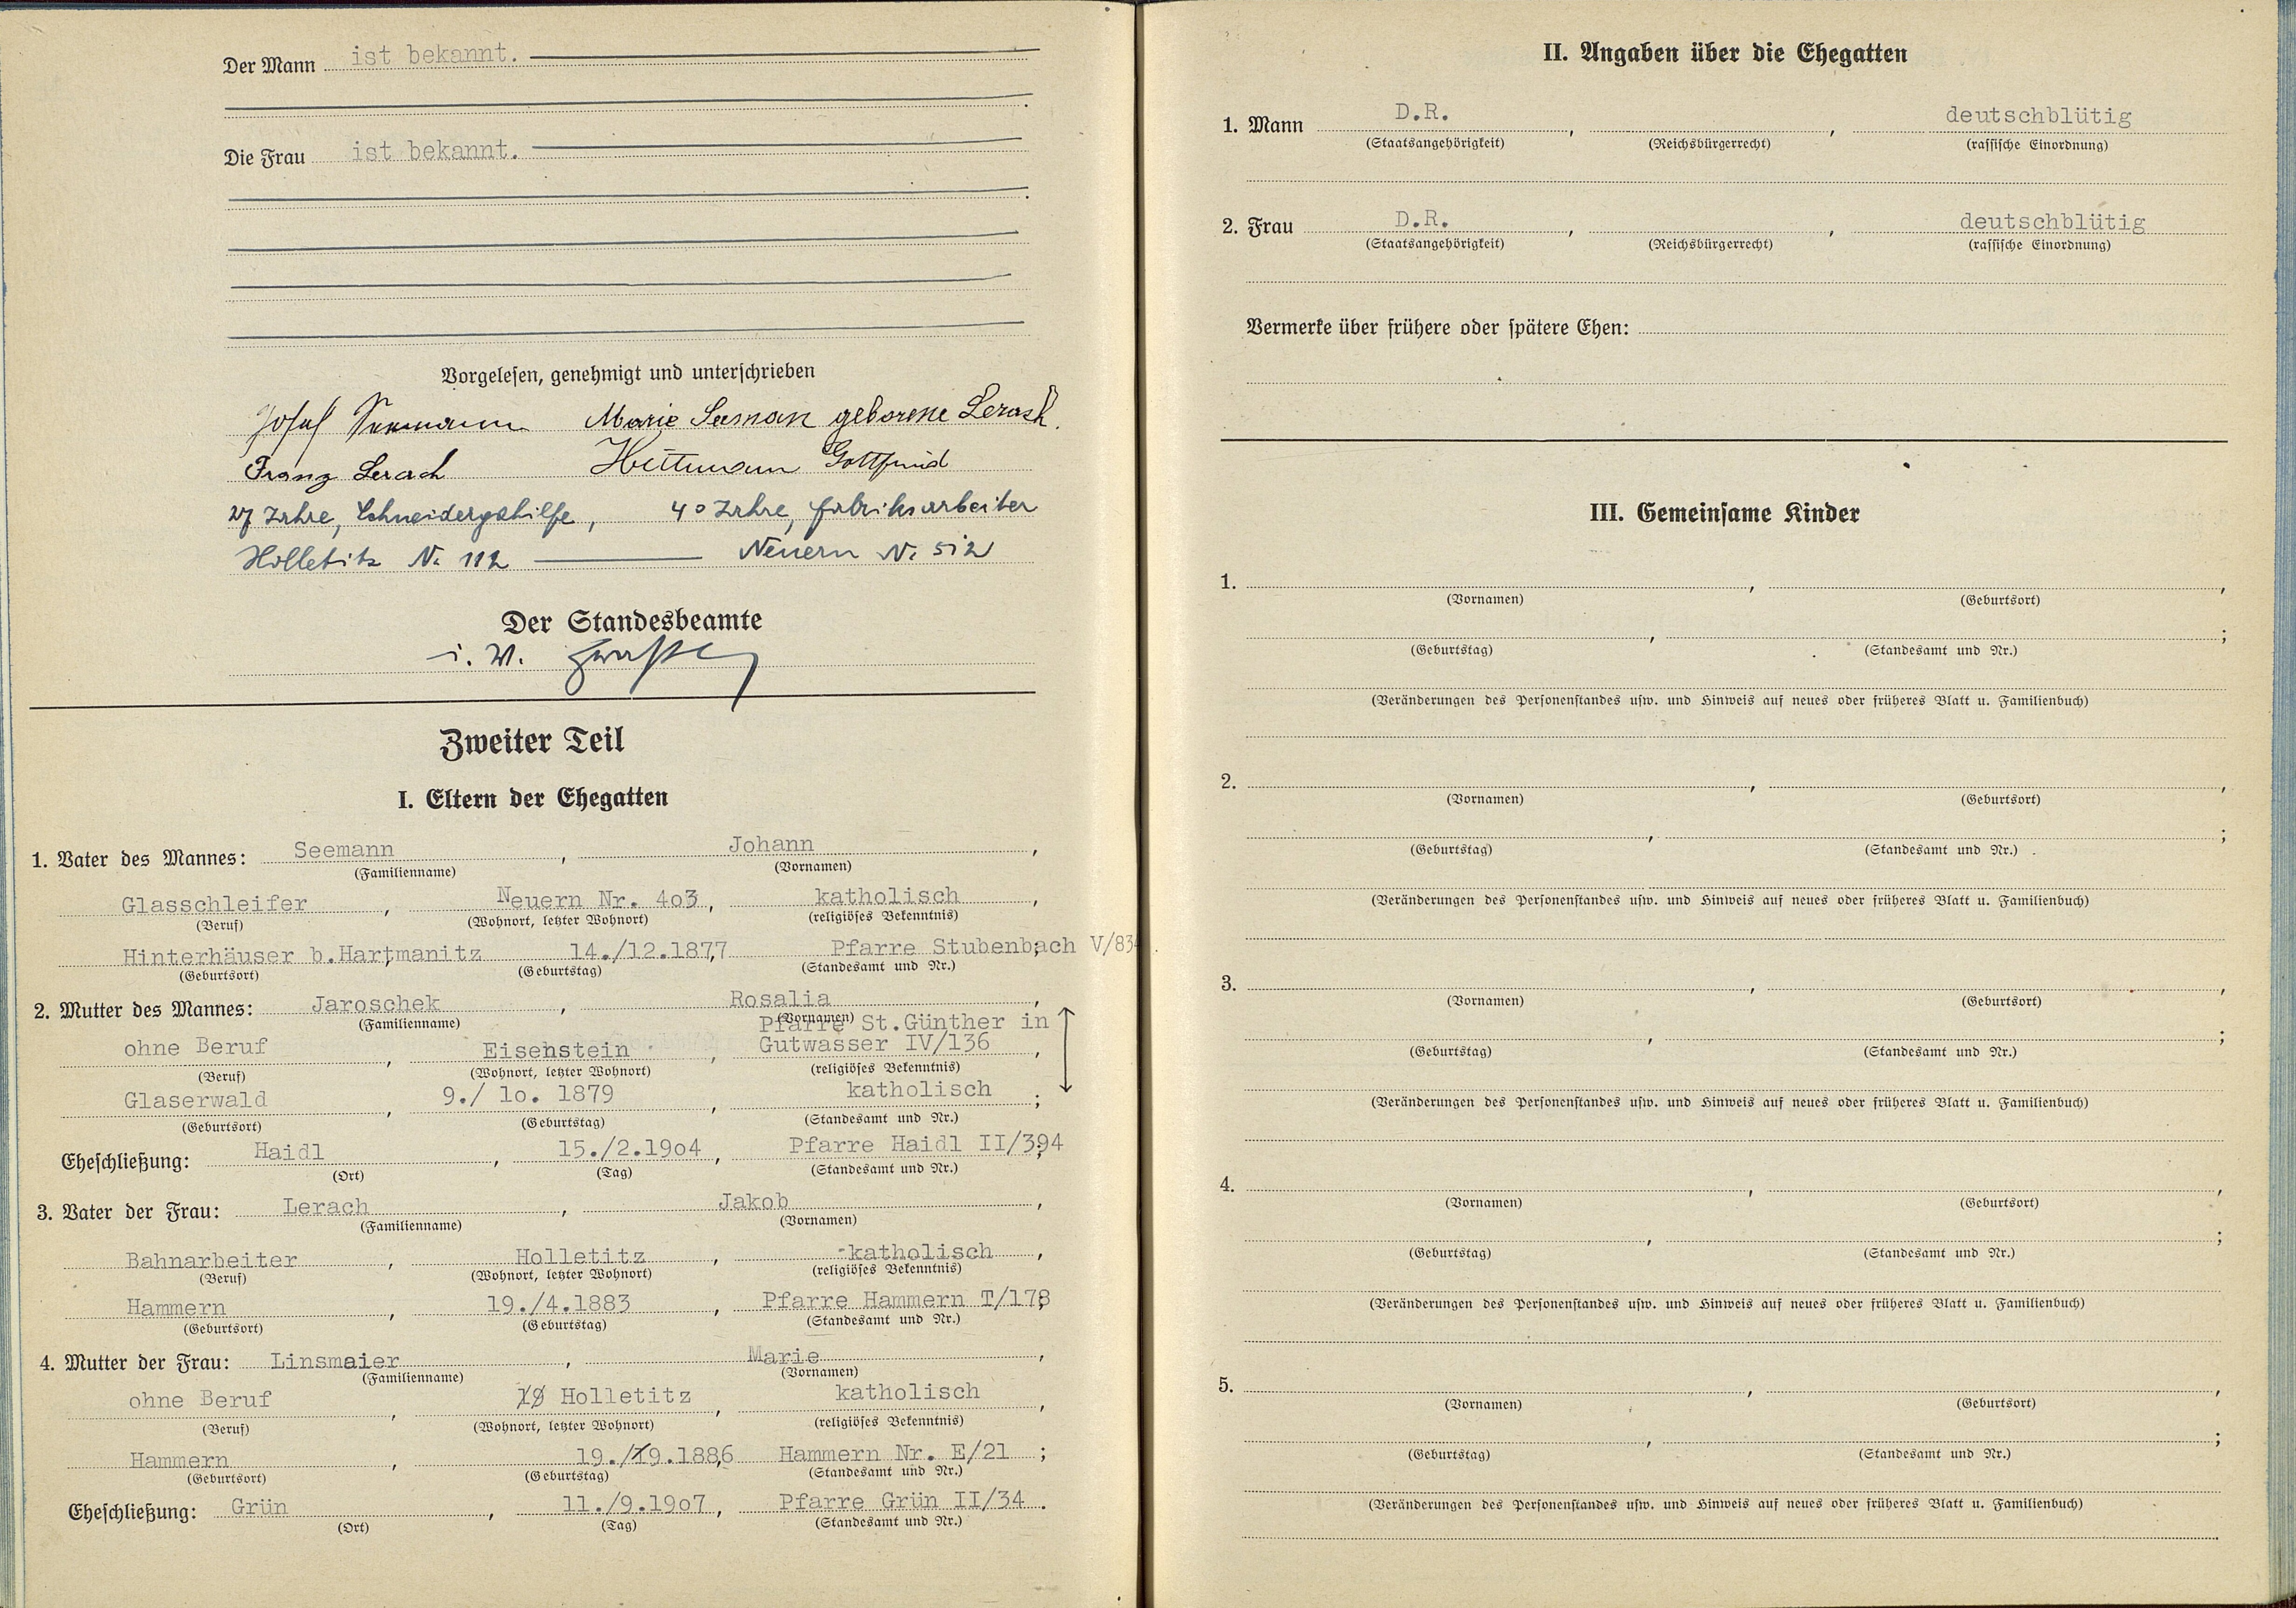 Der Mann ist bekannt.
Die Frau ist bekannt.
Vorgelesen, genehmigt und unterschrieben
Josef Seemann Marie Seeman geborene Lerach.
Franz Lerach Hüttmann Gottfried
27 Jahre, Schneidergehilfe, 40 Jahre, Fabriksarbeiter
Holletitz N. 112 Neuern N. 512
Der Standesbeamte
i. V.
Zweiter Teil
I. Eltern der Ehegatten
1. Vater des Mannes: Seemann, Johann,
(Familienname) (Vornamen)
Glasschleifer, Neuern Nr. 4o3, katholisch,
(Beruf) (Wohnort, letzter Wohnort) (religiöses Bekenntnis)
Hinterhäuser b.Hartmanitz, 14./12.1877, Pfarre Stubenbach V/834;
(Geburtsort) (Geburtstag) (Standesamt und Nr.)
2. Mutter des Mannes: Jaroschek, Rosalia,
(Familienname) (Vornamen)
Pfarre St.Günther in
ohne Beruf, Eisenstein, Gutwasser IV/136,
(Beruf) (Wohnort, letzter Wohnort) (religiöses Bekenntnis)
Glaserwald, 9./ 1o. 1879, katholisch;
(Geburtsort) (Geburtstag) (Standesamt und Nr.)
Eheschließung: Haidl, 15./2.19o4, Pfarre Haidl II/394;
(Ort) (Tag) (Standesamt und Nr.)
3. Vater der Frau: Lerach, Jakob,
(Familienname) (Vornamen)
Bahnarbeiter, Holletitz, katholisch,
(Beruf) (Wohnort, letzter Wohnort) (religiöses Bekenntnis)
Hammern, 19./4.1883, Pfarre Hammern T/178;
(Geburtsort) (Geburtstag) (Standesamt und Nr.)
4. Mutter der Frau: Linsmaier, Marie,
(Familienname) (Vornamen)
ohne Beruf, Holletitz, katholisch,
(Beruf) (Wohnort, letzter Wohnort) (religiöses Bekenntnis)
Hammern, 19./9.1886, Hammern Nr. E/21;
(Geburtsort) (Geburtstag) (Standesamt und Nr.)
Eheschließung: Grün, 11./9.19o7, Pfarre Grün II/34.
(Ort) (Tag) (Standesamt und Nr.)
II. Angaben über die Ehegatten
1. Mann D.R., , deutschblütig
(Staatsangehörigkeit) (Reichsbürgerrecht) (rassische Einordnung)
2. Frau D.R., , deutschblütig
(Staatsangehörigkeit) (Reichsbürgerrecht) (rassische Einordnung)
Vermerke über frühere oder spätere Ehen:
III. Gemeinsame Kinder
1. , ,
(Vornamen) (Geburtsort)
, ;
(Geburtstag) (Standesamt und Nr.)
(Veränderungen des Personenstandes usw. und Hinweis auf neues oder früheres Blatt u. Familienbuch)
2. , ,
(Vornamen) (Geburtsort)
, ;
(Geburtstag) (Standesamt und Nr.)
(Veränderungen des Personenstandes usw. und Hinweis auf neues oder früheres Blatt u. Familienbuch)
3. , ,
(Vornamen) (Geburtsort)
, ;
(Geburtstag) (Standesamt und Nr.)
(Veränderungen des Personenstandes usw. und Hinweis auf neues oder früheres Blatt u. Familienbuch)
4. , ,
(Vornamen) (Geburtsort)
, ;
(Geburtstag) (Standesamt und Nr.)
(Veränderungen des Personenstandes usw. und Hinweis auf neues oder früheres Blatt u. Familienbuch)
5. , ,
(Vornamen) (Geburtsort)
, ;
(Geburtstag) (Standesamt und Nr.)
(Veränderungen des Personenstandes usw. und Hinweis auf neues oder früheres Blatt u. Familienbuch)